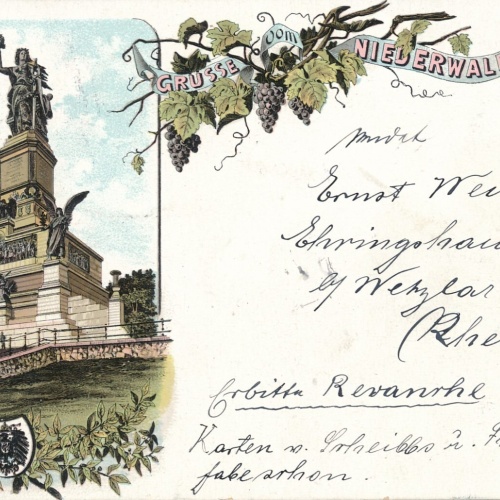 GRÜSSE VOM NIEDERWALD
sendet
Ernst Wei
Ehringshau
b/ Wetzlar
(Rhe
Erbitte Revanche
Karten v. Scheibbs u.
habe schon.